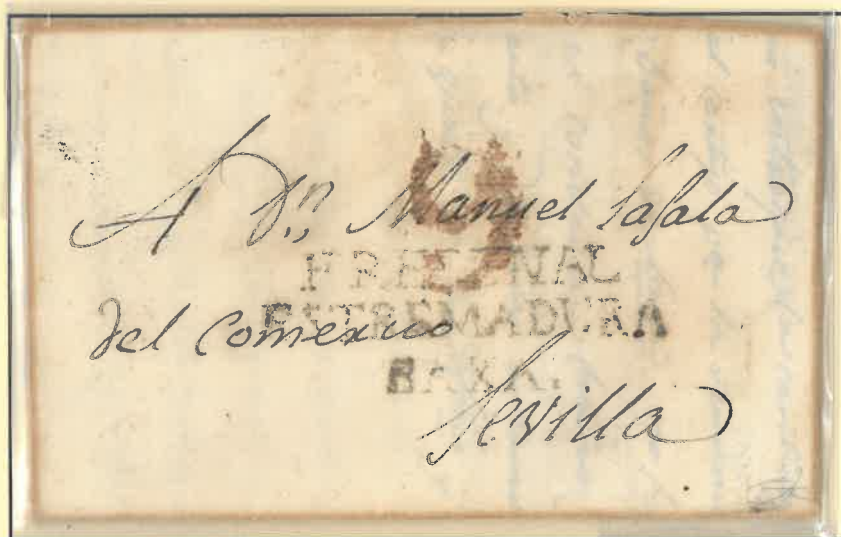 A Dn Manuel Lasala
FREGENAL
ESTREMADURA
BAXA.
del Comercio
Sevilla